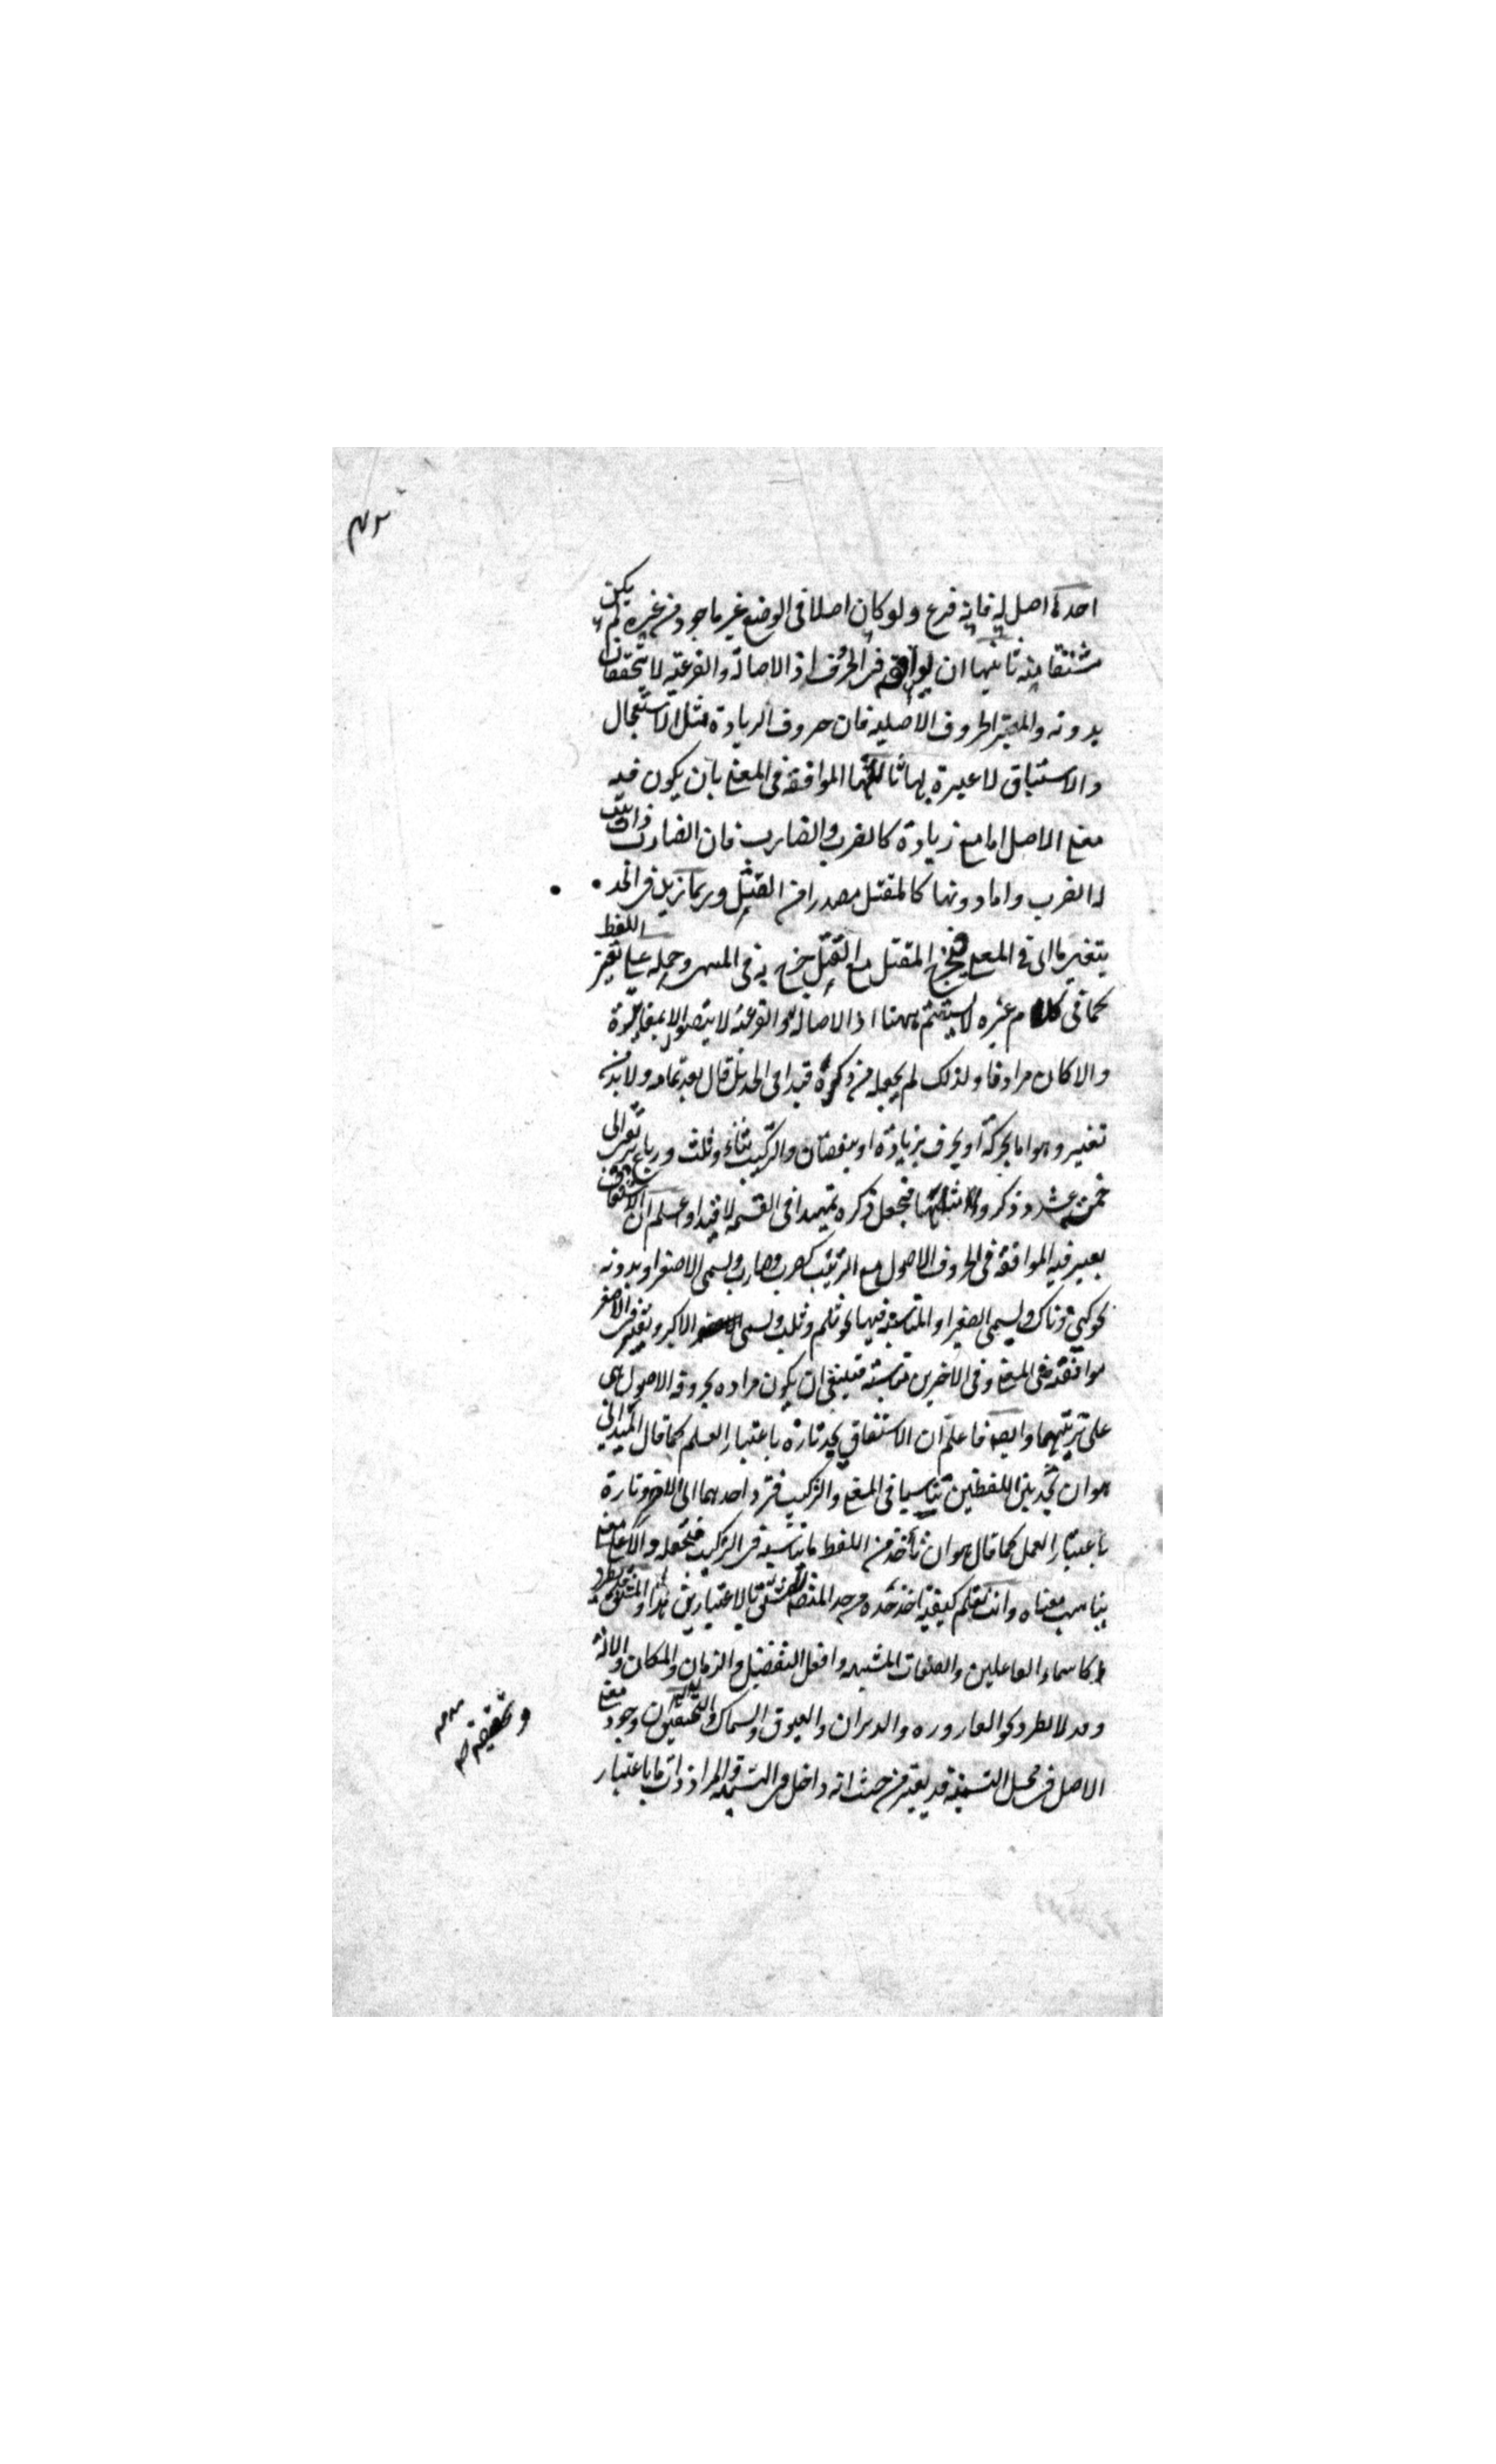 احدها اصل له فانه فرع ولو كان اصلا فى الوضع غير ماخوذ من غيره لم يكن
مشتقا منه ثانيها ان يوافقه فى الحروف اذ الاصالة والفرعية لا يتحققان
بدونه والمعتبر الحروف الاصلية فان حروف الزيادة مثل الاستعجال
والاستباق لا عبرة بها ثالثها الموافقة فى المعنى بان يكون فيه
معنى الاصل اما مع زيادة كالضرب والضارب فان الضارب ذات ثبت
له الضرب واما دونها كالمقتل مصدرا من القتل وربما زيد فى الحد
بتغير ما اى فى المعنى فيخرج المقتل مع القتل وحمله على تغير اللفظ
كما فى كلام غيره لا يستقيم ههنا اذ الاصالة والفرعية لا يتصور الا بمغايرة
والا كان مرادفا ولذلك لم يجعله من ذكره قيدا فى الحد بل قال بعد تمامه ولا بد من
تغيير وهو اما بحركة او بحرف بزيادة او بنقصان والتركيب ثناء وثلاث ورباع
خمسة عشر وذكروا امثلتها فيجعل ذكره تمهيدا فى القسمة لا قيدا واعلم ان الاشتقاق
يعتبر فيه الموافقة فى الحروف الاصول مع الترتيب كضرب وضارب ويسمى الاصغر او بدونه
نحو كنى وناك ويسمى الصغير او المناسبة فيها نحو ثلم وثلب ويسمى الاكبر ويعتبر فى الاصغر
موافقته فى المعنى وفى الاخيرين مناسبة فينبغى ان يكون مراده بحروفه الاصول اى
على ترتيبهما وايضا فاعلم ان الاشتقاق يحد تارة باعتبار العلم كما قال الميدانى
هو ان تجد بين اللفظين تناسبا فى المعنى والتركيب فترد احدهما الى الاخر وتارة
باعتبار العمل كما قال هو ان تأخذ من اللفظ ما يناسبه فى التركيب فتجعله دالا على معنى
يناسب معناه وانت تعلم كيفية اخذ حده من حد المصنف للمشتق بالاعتبارين هذا والمشتق قد يطرد
كاسماء الفاعلين والصفات المشبهة وافعل التفضيل والزمان والمكان والالة
وقد لا يطرد نحو القارورة والدبران والعيوق والسماك والتحقيق ان وجود معنى
الاصل فى محل التسمية قد يعتبر من حيث انه داخل فى التسمية والمراد ذات ما باعتبار
وتحقيقه